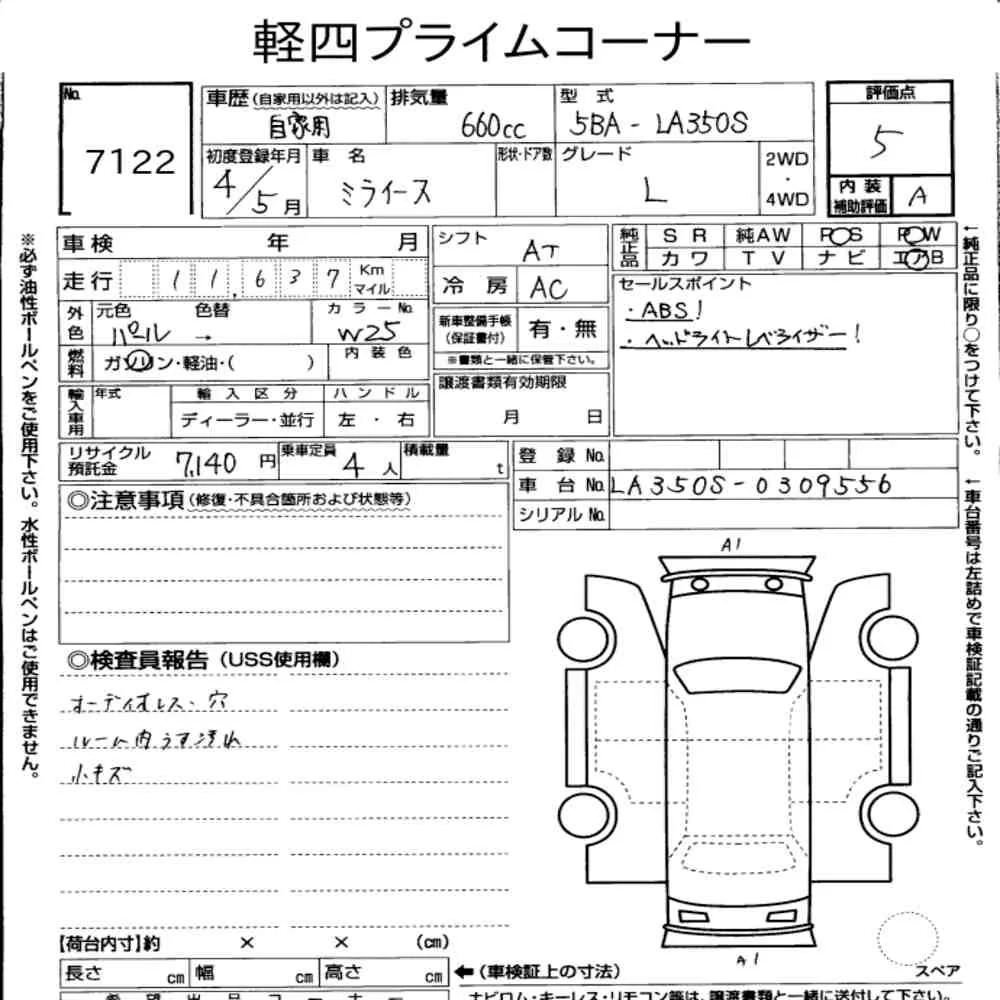 軽四プライムコーナー
No. 7122
車歴 (自家用以外は記入) 自家用
排気量 660cc
型式 5BA - LA350S
評価点 5
初度登録年月 4/5月
車名 ミライース
形状・ドア数
グレード L
2WD・4WD
内装補助評価 A
車検 年 月
シフト AT
純正品 SR 純AW P・S P・W
カワ TV ナビ エアB
走行 11,637 Km マイル
冷房 AC
セールスポイント
・ABS!
・ヘッドライトレベライザー!
外色 元色 パール → 色替
カラーNo. W25
新車整備手帳(保証書付) 有・無
※書類と一緒に保管下さい。
燃料 ガソリン・軽油・( )
内装色
譲渡書類有効期限 月 日
輸入車用 年式 輸入区分 ディーラー・並行 ハンドル 左・右
リサイクル預託金 7,140円
乗車定員 4人
積載量 t
登録No.
車台No. LA350S-0309556
シリアルNo.
◎注意事項 (修復・不具合箇所および状態等)
◎検査員報告 (USS使用欄)
オーディオレス・穴
ルーム内うす汚れ
小キズ
A1
A1
スペア
【荷台内寸】約 × × (cm)
長さ cm 幅 cm 高さ cm
←(車検証上の寸法)
希望出品コーナー
ナビロム・キーレス・リモコン等は、譲渡書類と一緒に送付して下さい。
※必ず油性ボールペンをご使用下さい。水性ボールペンはご使用できません。
←純正品に限り○をつけて下さい。
←車台番号は左詰めで車検証記載の通りご記入下さい。